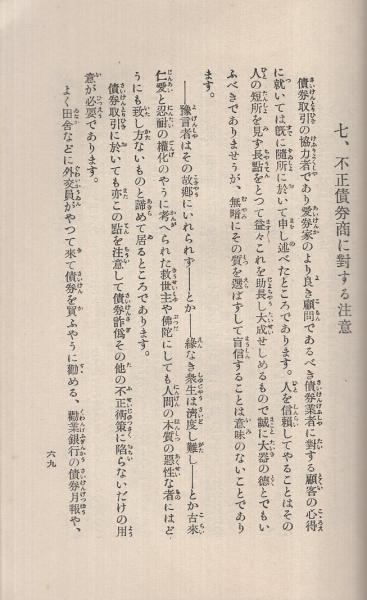 七、不正債券商に對する注意
債券取引の協力者であり愛券家のより良き顧問であるべき債券業者に對する顧客の心得
に就いては既に隨所に於いて申し述べたところであります。人を信頼してやることはその
人の短所を見ず長點をとつて益々これを助長し大成せしめるもので誠に大器の德とでもい
ふべきでありませうが、無暗にその質を選ばずして盲信することは意味のないことであり
ます。
――豫言者はその故鄕にいれられず――とか――緣なき衆生は濟度し難し――とか古來
仁愛と忍耐の權化のやうに考へられた救世主や佛陀にしても人間の本質の惡性な者にはど
うにも致し方ないものと諦めて居るところであります。
債券取引に於いても亦この點を注意して債券詐僞その他の不正術策に陷らないだけの用
意が必要であります。
よく田舍などに外交員がやつて來て債券を買ふやうに勸める、勸業銀行の債券月報や、
六九